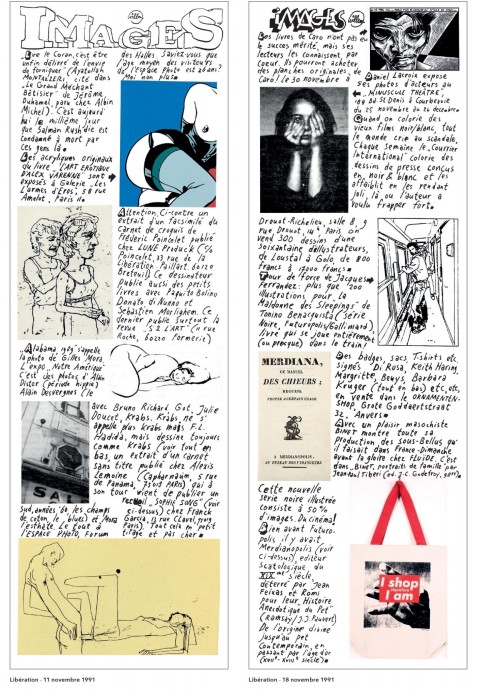 IMAGES
Que le Coran, c'est être
enfin délivré de l'envie
de forniquer (Ayatollah
Montazeri, cité dans
"Le Grand Méchant
Bêtisier" de Jérôme
Duhamel, paru chez Albin
Michel). C'est aujourd'
hui le millième jour
que Salman Rushdie est
condamné à mort par
ces gens là.
Des acryliques originaux
du livre "L'ART ÉROTIQUE
D'ALEX VARENNE" sont
exposés à Galerie "Les
L'armes d'Eros", 58 rue
Amelot, Paris 11.
des Halles. Saviez-vous que
l'âge moyen des visiteurs
de l'Espace Photo est 26 ans?
Moi non plus
Attention, Ci-contre un
extrait d'un facsimilé du
carnet de croquis de
Frédéric Poincelet publié
chez LUNE Produck (C/o
Poincelet, 33 rue de la
Libération Paillart, 60120
Breteuil). Ce dessinateur
publie aussi des petits
livres avec Paquito Bolino
Donato di Nunno et
Sébastien Morlighem. Ce
dernier publie surtout la
revue "S 2 L'ART" (11 rue
Roche, 60220 Formerie)
"Alabama, 1969" s'appelle
la photo de Gilles Mora
L'expo "Notre Amérique"
C'est des photos d'Alain
Dister (période hippie)
Alain Desvergnes (le
Sud, années 60, les champs
de coton, le blues) et Mora
l'esthète. Le tout à
l'ESPACE PHOTO, Forum
avec Bruno Richard Got, Julie
Doucet, Krabs. Krabs, ne s'
appelle plus Krabs mais F.L.
Hadida, mais dessine toujours
comme Krabs (voir tout en
bas, un extrait d'un carnet
sans titre publié chez Alexis
Lemoine (Capharnaüm, 5 rue
de Panama, 75018 PARIS) qui à
son tour vient de publier un
recueil "SOPHIE SONG" (voir
ci-dessus) chez Franck
Garcia, 13 rue Clavel, 75019
Paris). Tout cela en petit
tirage et pas cher.
Libération - 11 novembre 1991
IMAGES
willem
Les livres de Caro n'ont pas eu
le succès mérité, mais ses
lecteurs les connaissent par
coeur. Ils pourront acheter
des planches originales, de
Caro! le 30 novembre à
Daniel Lacroix expose
ses photos d'acteurs au
"MINUSCULE THEATRE",
189 Bd. St-Denis à Courbevoie
du 25 novembre au 20 décembre.
Quand on colorie des
vieux films noir/blanc, tout
le monde crie au scandale.
Chaque semaine le "Courrier
International" colorie des
dessins de presse conçus
en noir & blanc et les
affaiblit en les rendant
joli, là où l'auteur a
voulu frapper fort.
Drouot-Richelieu, salle 8, 9
rue Drouot, Paris on
vend 300 dessins d'une
soixantaine d'illustrateurs,
de Loustal à Golo, de 800
francs à 17000 francs.
Tour de force de Jacques
Ferrandez: plus que 200
illustrations pour "La
Maldonne des Sleepings" de
Tonino Benacquista (Série
Noire, Futuropolis/Gallimard)
livre qui se joue entièrement
(ou presque) dans le train!
MERDIANA,
OU MANUEL
DES CHIEURS;
RECUEIL
PROPRE A CERTAIN USAGE
A MERDIANOPOLIS,
Des badges, sacs, T-shirts etc,
signés "Di Rosa", Keith Haring,
Margritte, Beuys, Barbara
Kruger (tout en bas) etc, etc,
en vente dans le ORNAMENTEN-
SHOP Grote Goddaertstraat
32, Anvers
Avec un plaisir masochiste
BINET montre toute sa
production des sous-Bellus qu'
il faisait dans France-Dimanche
avant la gloire chez FLUIDE. C'est
dans "BINET, portraits de famille" par
Jean-Paul Tibéri (ed. J.C. Godefroy,
Cette nouvelle
série noire illustrée
consiste à 50%
d'images. Du cinéma!
Bien avant Futuro-
polis, il y avait
Merdianopolis (voir
ci-dessus), éditeur
scatologique du
XIXme siècle,
déterré par Jean
Feixas et Romi
pour leur "Histoire
Anecdotique du Pet"
(Ramsay/J.J. Pauvert)
De l'origine divine
jusqu'au pet
Contemporain, en
passant par l'âge d'or
(XVIIe-XVIIIe siècle).
I shop
therefore
I am
Libération - 18 novembre 1991